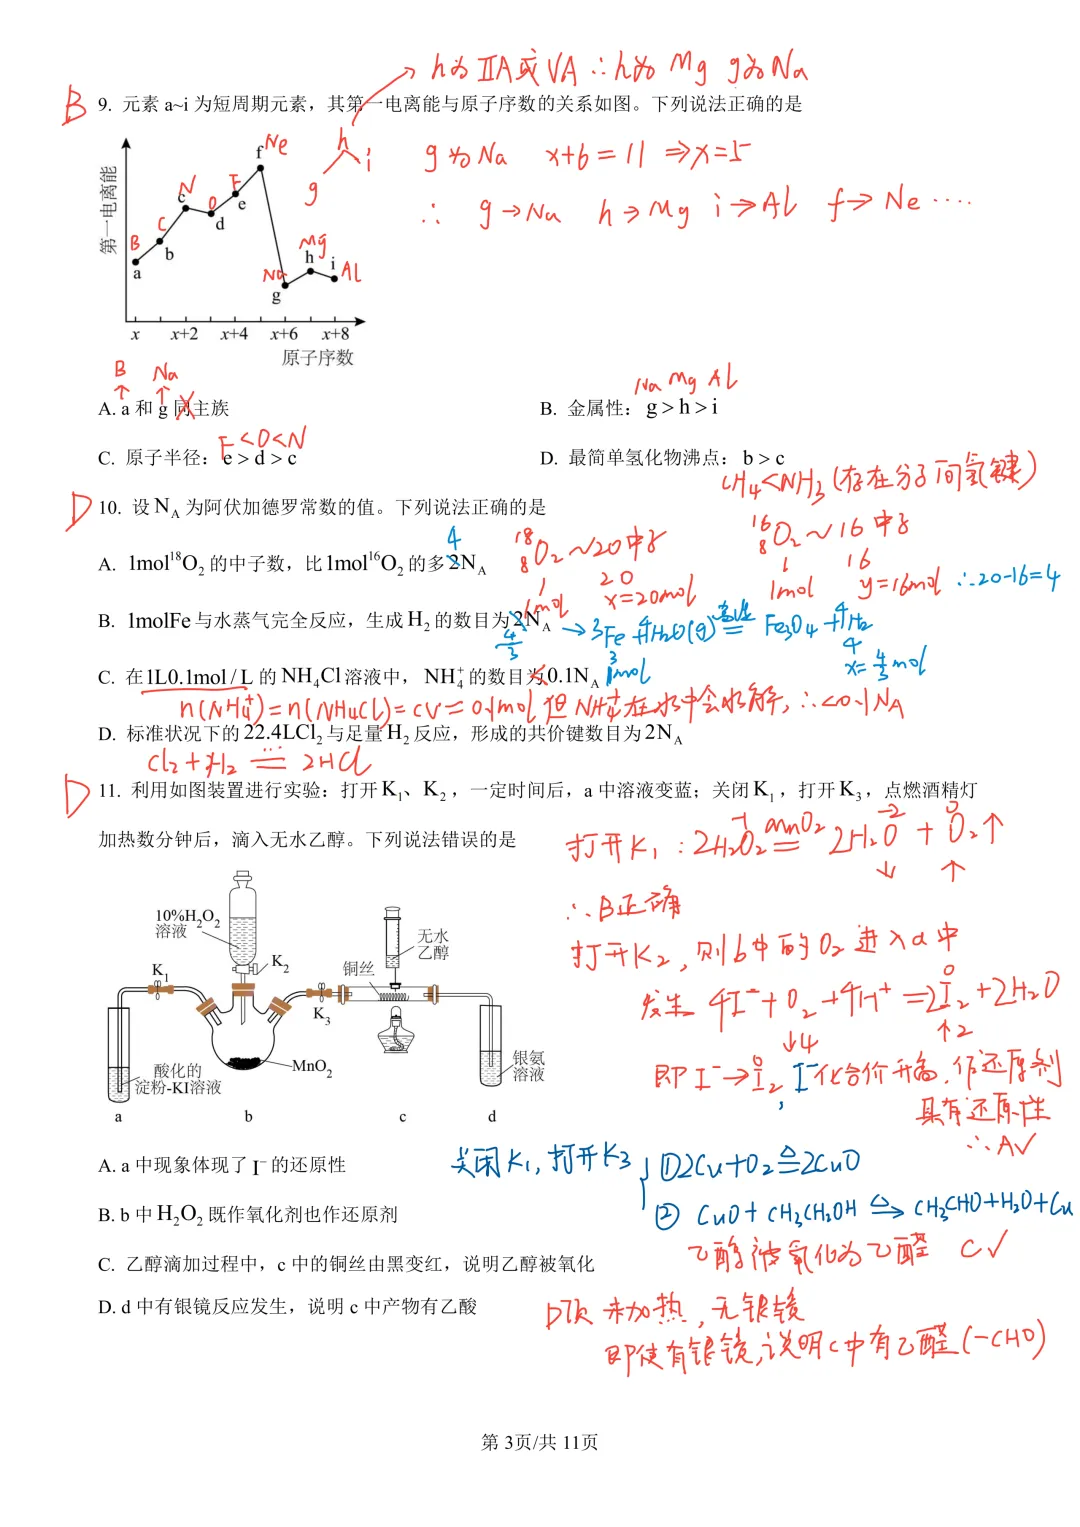 h为 ⅡA或ⅤA ∴h为 Mg g为Na
B 9. 元素 a~i 为短周期元素，其第一电离能与原子序数的关系如图。下列说法正确的是
g为Na x+6=11 ⇒x=5
∴ g→Na h→Mg i→Al f→Ne ····
h
g i
第一电离能
B C N O F Ne Na Mg Al
a b c d e f g h i
x x+2 x+4 x+6 x+8
原子序数
B Na
↑ ↑
A. a 和 g 同主族
Na Mg Al
B. 金属性：g > h > i
F<O<N
C. 原子半径：e > d > c
D. 最简单氢化物沸点：b > c
CH₄<NH₃(存在分子间氢键)
D 10. 设 N_A 为阿伏加德罗常数的值。下列说法正确的是
A. 1mol¹⁸O₂ 的中子数，比 1mol¹⁶O₂ 的多 2N_A
4
¹⁸₈O₂~20中子 ¹⁶₈O₂~16中子
1 20 1 16
1mol x=20mol 1mol y=16mol ∴20-16=4
B. 1molFe 与水蒸气完全反应，生成 H₂ 的数目为 2N_A
4/3
→3Fe+4H₂O(g) 高温 = Fe₃O₄+4H₂
3 4
1mol x=4/3mol
C. 在 1L0.1mol / L 的 NH₄Cl 溶液中， NH₄⁺ 的数目为 0.1N_A
<
n(NH₄⁺)=n(NH₄Cl)=cV=0.1mol 但NH₄⁺在水中会水解，∴<0.1N_A
D. 标准状况下的 22.4LCl₂ 与足量 H₂ 反应，形成的共价键数目为 2N_A
Cl₂+H₂ = 2HCl
D 11. 利用如图装置进行实验：打开 K₁、K₂，一定时间后，a 中溶液变蓝；关闭 K₁，打开 K₃，点燃酒精灯
加热数分钟后，滴入无水乙醇。下列说法错误的是
打开K₁：2H₂O₂ MnO₂ = 2H₂O + O₂↑
-1 -2 0
↓ ↑
∴B正确
打开K₂，则b中的O₂进入a中
发生 4I⁻+O₂+4H⁺=2I₂+2H₂O
0
↓4 ↑2
即I⁻→I₂，I⁻化合价升高，作还原剂
0
具有还原性
∴A√
10%H₂O₂
溶液
K₁
K₂
铜丝
无水
乙醇
K₃
MnO₂
酸化的
淀粉-KI溶液
银氨
溶液
a b c d
A. a 中现象体现了 I⁻ 的还原性
关闭K₁，打开K₃
①2Cu+O₂ △ = 2CuO
B. b 中 H₂O₂ 既作氧化剂也作还原剂
② CuO+CH₃CH₂OH △→ CH₃CHO+H₂O+Cu
乙醇被氧化为乙醛 C√
C. 乙醇滴加过程中，c 中的铜丝由黑变红，说明乙醇被氧化
D. d 中有银镜反应发生，说明 c 中产物有乙酸
D项 未加热，无银镜
即使有银镜，说明c中有乙醛(-CHO)
第 3页/共 11页